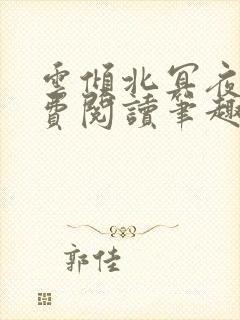 雲傾北冥夜
費閱讀筆趣
郭佳